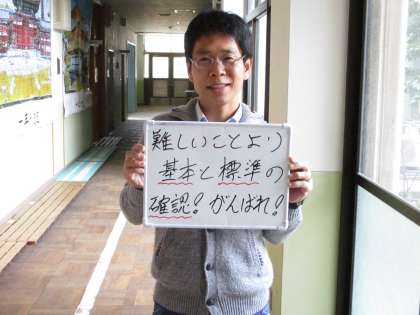 難しいことより
基本と標準の
確認!がんばれ!